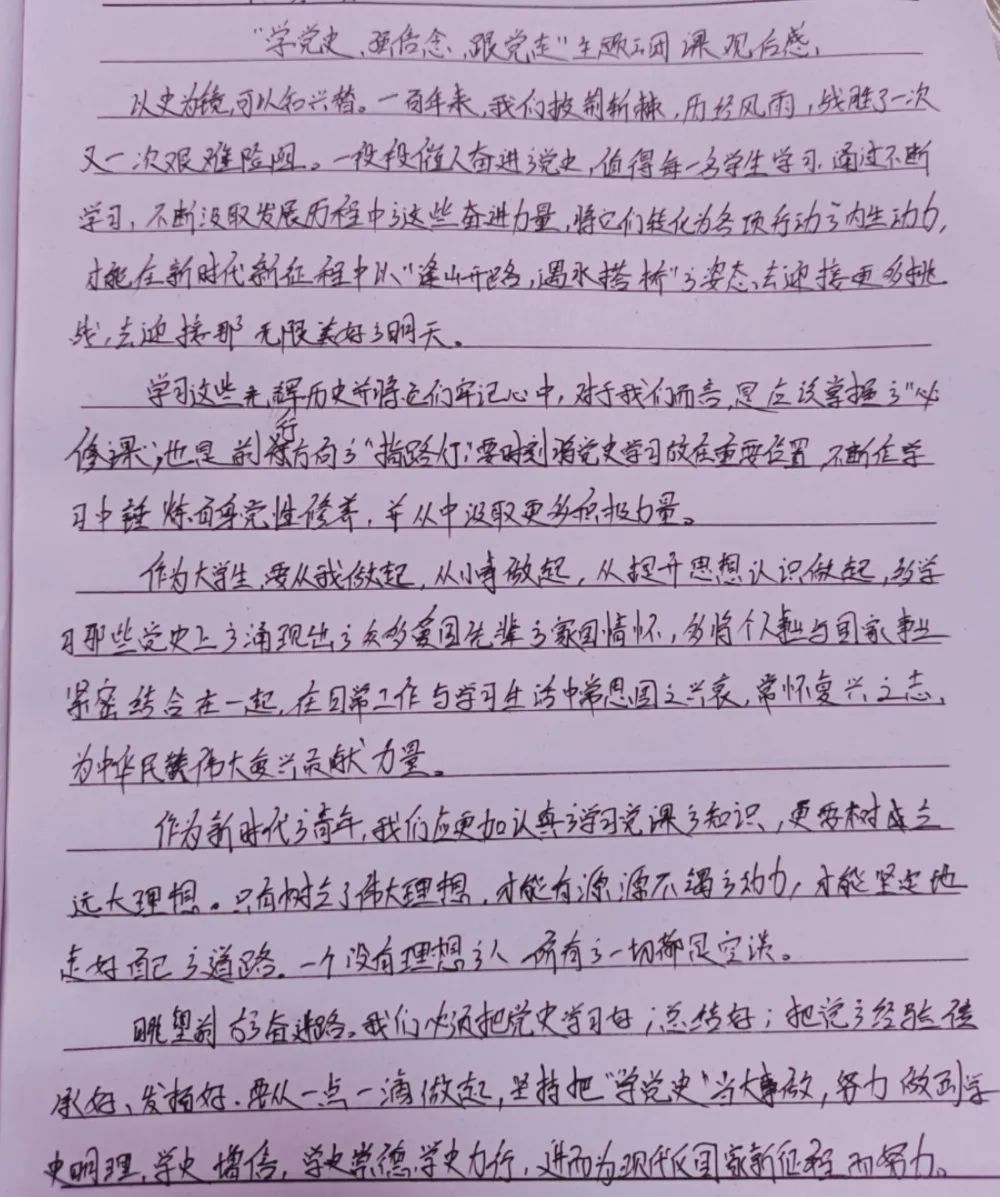 “学党史、强信念、跟党走”主题团课观后感、
以史为镜,可以知兴替。一百年来,我们披荆斩棘,历经风雨,战胜了一次
又一次艰难险阻。一段段催人奋进的党史,值得每一名学生学习.通过不断
学习,不断汲取发展历程中的这些奋进力量,将它们转化为各项行动的内生动力,
才能在新时代新征程中以“逢山开路,遇水搭桥”的姿态,去迎接更多挑
战,去迎接那无限美好的明天。
学习这些光辉历史并将它们牢记心中,对于我们而言,是应该掌握的“必
修课”,也是前行方向的“指路灯”,要时刻将党史学习放在重要位置,不断在学
习中锤炼自身党性修养,并从中汲取更多积极力量。
作为大学生,要从我做起,从小事做起,从提升思想认识做起,多学
习那些党史上的涌现出的众多爱国先辈的家国情怀,多将个人事业与国家事业
紧密结合在一起,在日常工作与学习生活中常思国之兴衰,常怀复兴之志,
为中华民族伟大复兴贡献力量。
作为新时代的青年,我们应更加认真的学习党课的知识,更要树成立
远大理想。只有树立了伟大理想,才能有源源不竭的动力,才能坚定地
走好自己的道路.一个没有理想的人所有的一切都是空谈。
眺望前方的奋进路。我们必须把党史学习好;总结好;把党的经验传
承好、发扬好.要从一点一滴做起,坚持把“学党史”当大事做,努力做到学
史明理,学史增信,学史崇德,学史力行,进而为现代化国家新征程而努力。